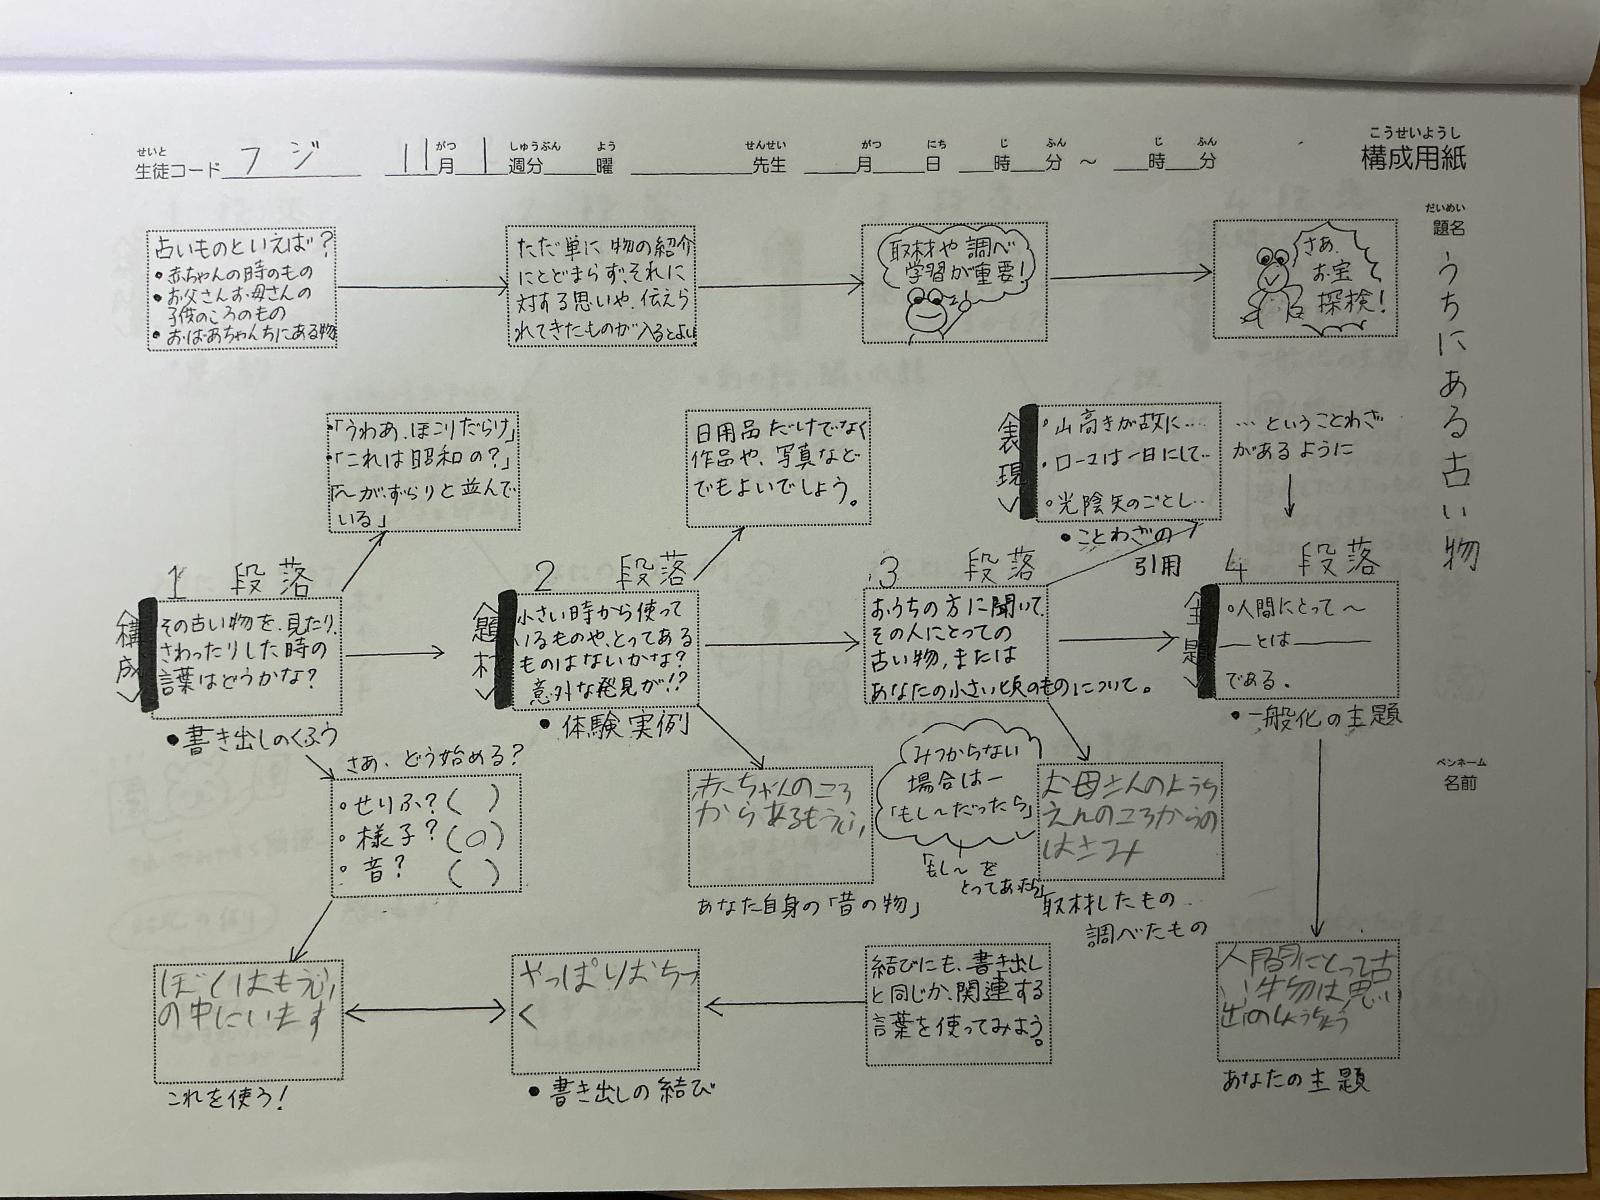 こうせいようし
構成用紙
せいと がつ しゅうぶん よう せんせい がつ にち じ ふん じ ふん
生徒コード フジ 11月1週分 曜 先生 月 日 時 分 ～ 時 分
だいめい
題名
うちにある古い物
ペンネーム
名前
古いものといえば？
・赤ちゃんの時のもの
・お父さんお母さんの
子供のころのもの
・おばあちゃんちにある物
ただ単に物の紹介
にとどまらず、それに
対する思いや、伝えら
れてきたものが入るとよい
取材や調べ
学習が重要！
さあ、
お宝
探検！
・「うわあ、ほこりだらけ」
・「これは昭和の？」
「～がずらりと並んで
いる」
日用品だけでなく
作品や、写真など
でもよいでしょう。
＜表現＞
・山高きが故に…
・ローマは一日にして…
・光陰矢のごとし…
・ことわざの
引用
…ということわざ
があるように
1 段落
＜構成＞
その古い物を、見たり、
さわったりした時の
言葉はどうかな？
・書き出しのくふう
2 段落
＜題材＞
小さい時から使って
いるものや、とってある
ものはないかな？
意外な発見が!?
・体験実例
3 段落
おうちの方に聞いて、
その人にとっての
古い物、または
あなたの小さい頃のものについて。
4 段落
＜主題＞
・人間にとって～
―とは―――
である。
・一般化の主題
さあ、どう始める？
・せりふ？（ ）
・様子？（○）
・音？ （ ）
赤ちゃんのころ
からあるもうふ
あなた自身の「昔の物」
みつからない
場合は―
「もし～だったら」
「もし～を
とってあたら」
お母さんのようち
えんのころからの
はさみ
取材したもの
調べたもの
ぼくはもうふ
の中にいます
これを使う！
やっぱりおちつ
く
・書き出しの結び
結びにも、書き出し
と同じか、関連する
言葉を使ってみよう。
人間にとって古
い物は思い
出のしょうちょう
あなたの主題